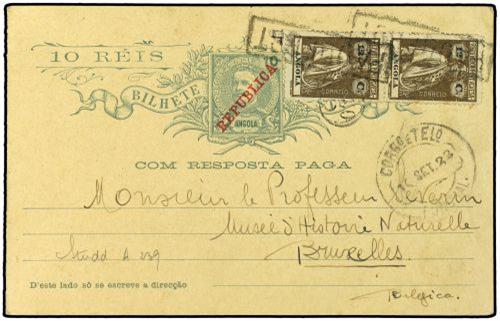 10 RÉIS
BILHETE
REPUBLICA
ANGOLA
ANGOLA
ANGOLA
CORREIO
CORREIO
COM RESPOSTA PAGA
SET. 22
Monsieur le Professeur Severin
Musée d'Histoire Naturelle
Bruxelles.
A 239
D'este lado só se escreve a direcção
Belgica.